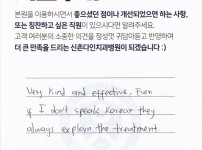 본원을 이용하시면서 좋으셨던 점이나 개선되었으면 하는 사항,
또는 칭찬하고 싶은 직원이 있으시다면 알려주세요.
고객 여러분의 소중한 의견을 정성껏 귀담아듣고 반영하여
더 큰 만족을 드리는 신촌다인치과병원이 되겠습니다 :)
Very kind and effective. Even
if I don't speak Korean they
always explain the treatment